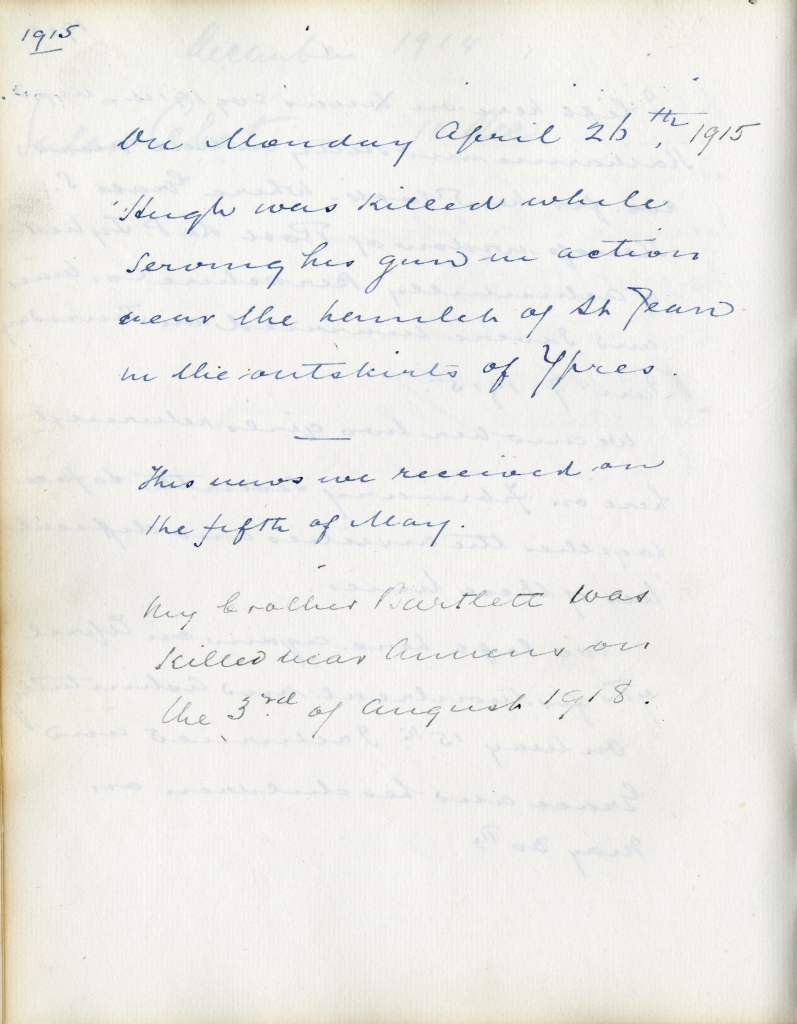 1915
On Monday April 26th, 1915
Hugh was killed while
serving his gun in action
near the hamlet of St Jean
in the outskirts of Ypres.
This news we received on
the fifth of May.
My brother Bartlett was
killed near Amiens on
the 3rd of August 1918.